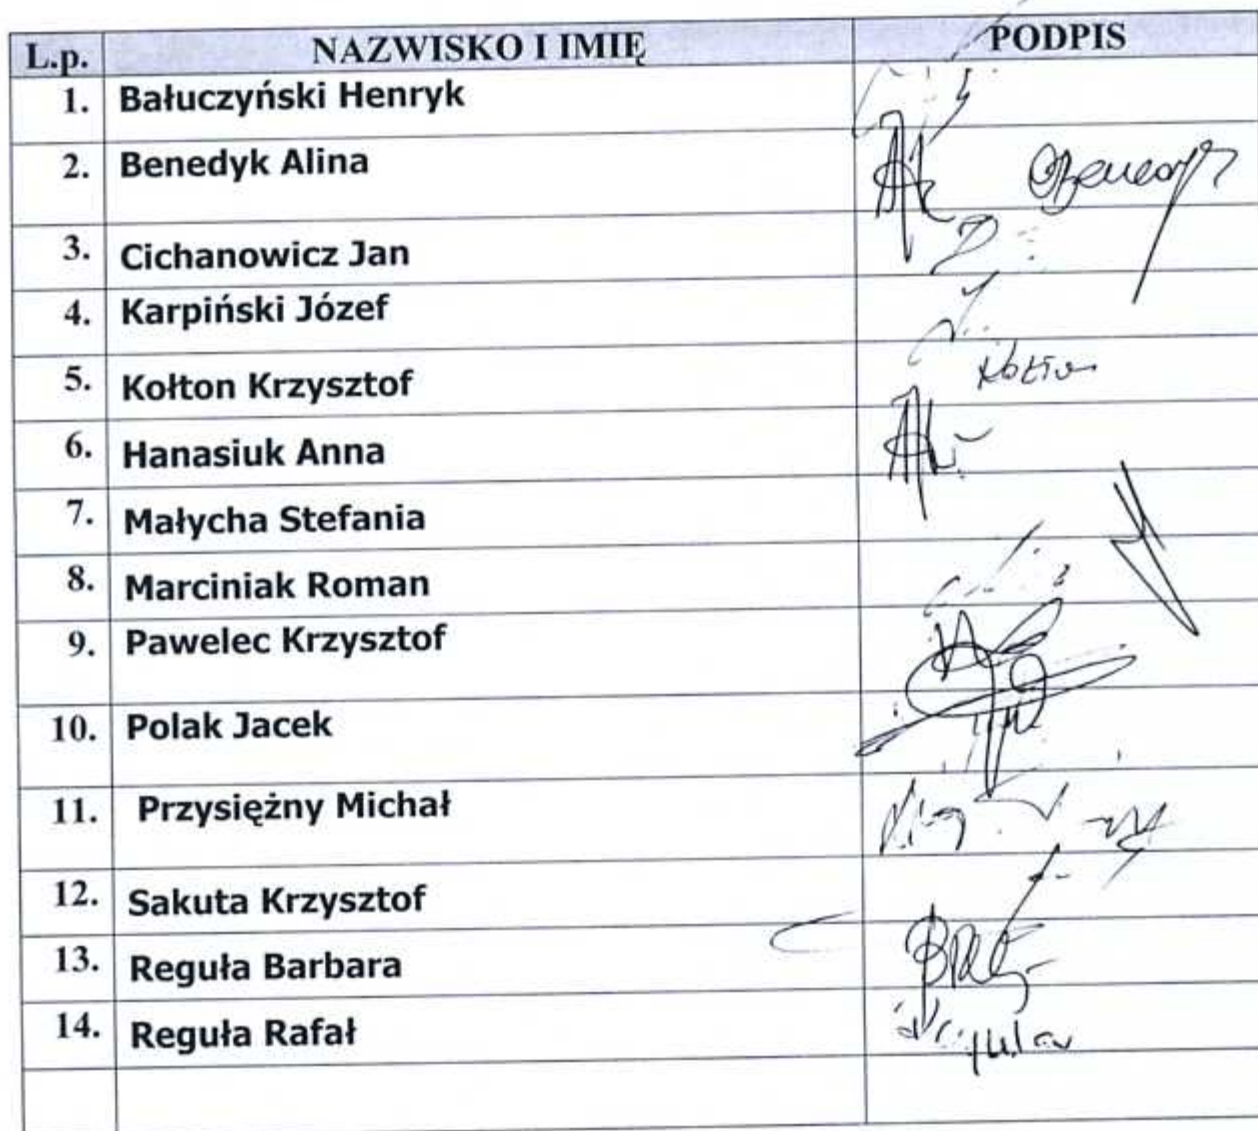 L.p. NAZWISKO I IMIĘ PODPIS
1. Bałuczyński Henryk
2. Benedyk Alina
3. Cichanowicz Jan
4. Karpiński Józef
5. Kołton Krzysztof
6. Hanasiuk Anna
7. Małycha Stefania
8. Marciniak Roman
9. Pawelec Krzysztof
10. Polak Jacek
11. Przysiężny Michał
12. Sakuta Krzysztof
13. Reguła Barbara
14. Reguła Rafał